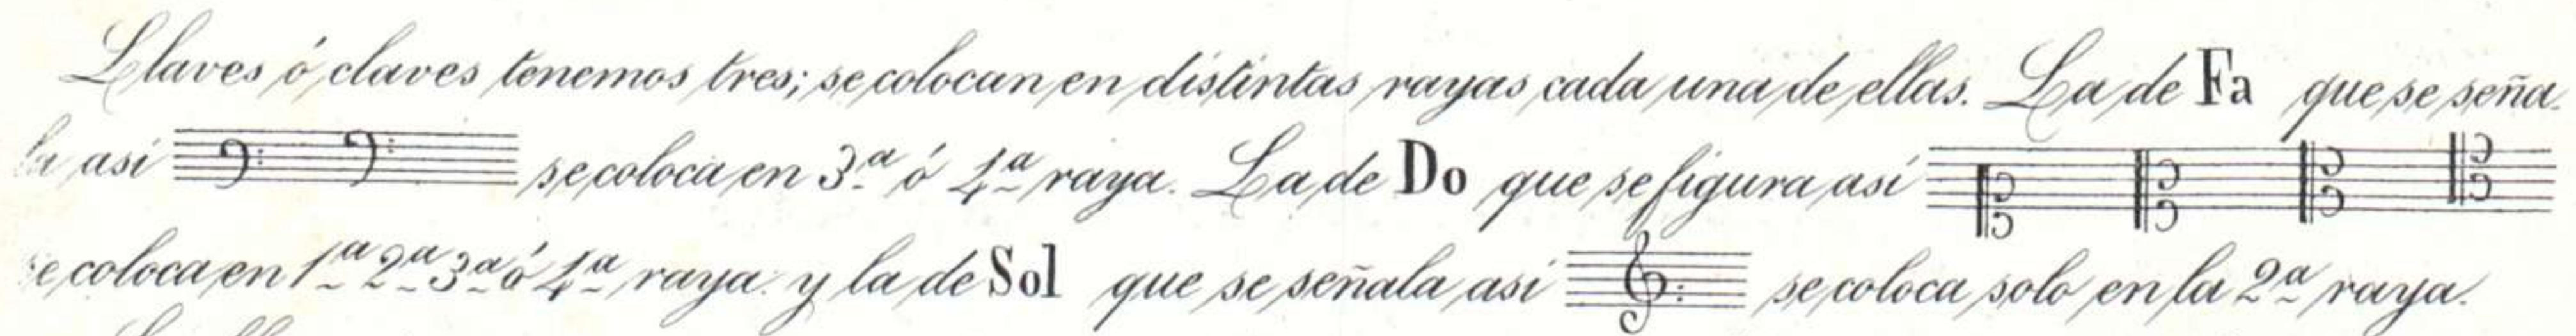 Llaves ó claves tenemos tres; se colocan en distintas rayas cada una de ellas. La de Fa que se seña-
la asi se coloca en 3ª ó 4ª raya. La de Do que se figura asi
se coloca en 1ª 2ª 3ª ó 4ª raya y la de Sol que se señala asi se coloca solo en la 2ª raya.